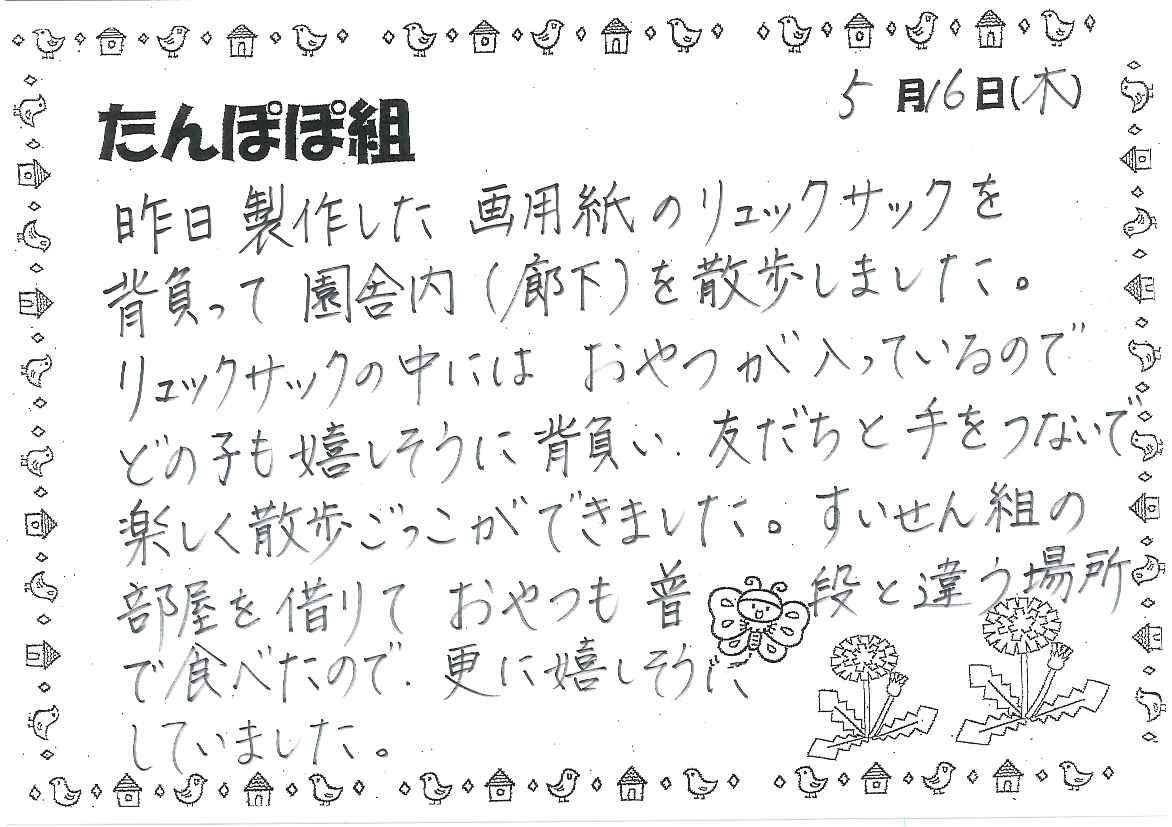 5月16日(木)
たんぽぽ組
昨日製作した 画用紙のリュックサックを
背負って 園舎内(廊下)を散歩しました。
リュックサックの中には おやつが入っているので
どの子も嬉しそうに背負い、友だちと手をつないで
楽しく散歩ごっこができました。すいせん組の
部屋を借りて おやつも普段と違う場所
で食べたので、更に嬉しそうに
していました。